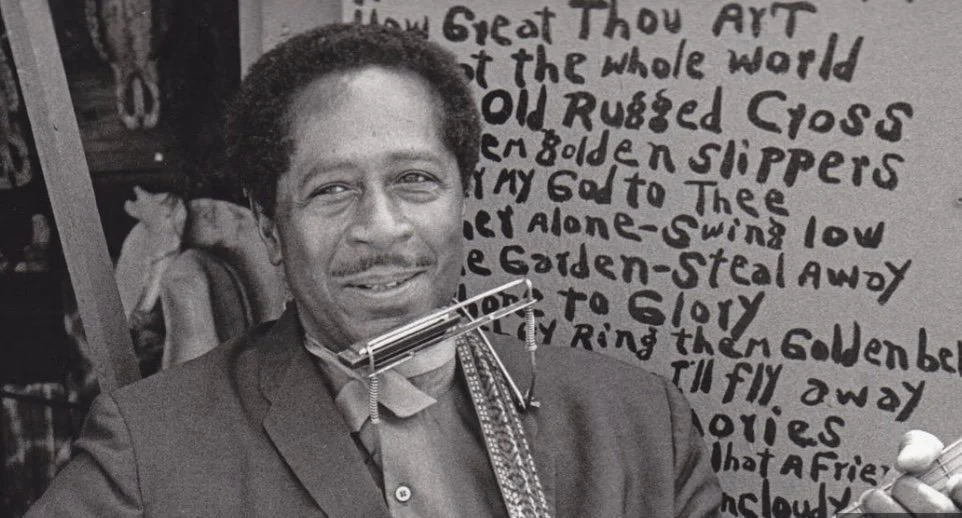 How Great Thou ArT
t the whole world
Old Rugged Cross
em golden slippers
r MY God to Thee
her Alone-Swing low
e Garden-Steal Away
hone to Glory
Ring them Golden bel
I'll fly away
ories
That A Frie
ncloudy